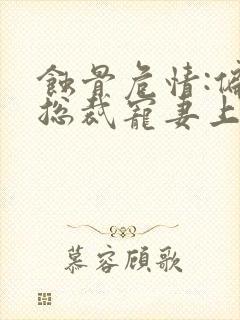 蚀骨危情:偏
总裁宠妻上
慕容顾歌